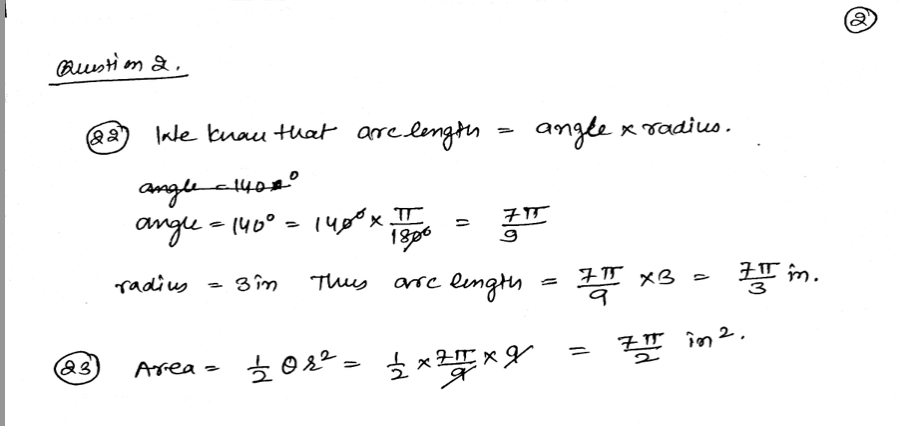 ②
Question 2.
(22) We know that arc length = angle x radius.
angle = 140°
angle = 140° = 140° x π/180 = 7π/9
radius = 3in Thus arc length = 7π/9 x3 = 7π/3 in.
(23) Area = 1/2 θr² = 1/2 x 7π/9 x 9 = 7π/2 in².